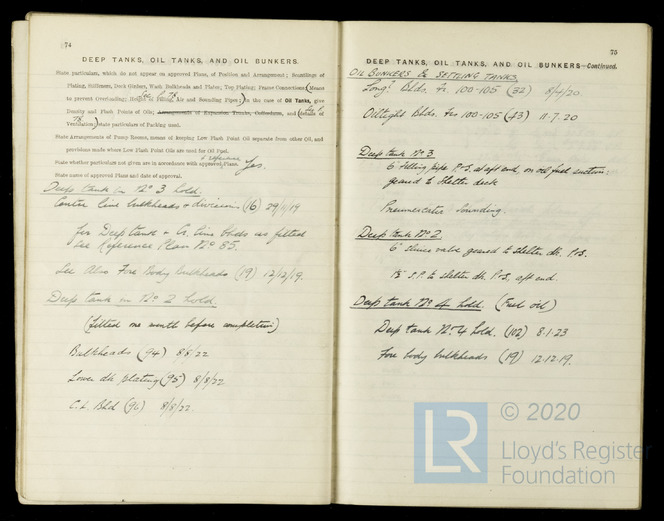 74
DEEP TANKS, OIL TANKS, AND OIL BUNKERS.
State particulars, which do not appear on approved Plans, of Position and Arrangement; Scantlings of
Plating, Stiffeners, Deck Girders, Wash Bulkheads and Plates, Top Plating; Frame Connections; Means
to prevent overloading; Height of Filling, Air and Sounding Pipes; In the case of Oil Tanks, give
Density and Flash Points of Oils; Arrangements of Expansion Trunks, Cofferdams, and (details of
Ventilation) state particulars of Packing used.
State Arrangements of Pump Rooms, means of keeping Low Flash Point Oil separate from other Oil, and
provisions made where Low Flash Point Oils are used for Oil Fuel.
State whether particulars not given are in accordance with approved Plans. Yes.
State name of approved Plans and date of approval.
Deep tank in No 3 hold.
Centre line bulkheads & divisions (16) 29/11/19
for Deep tank & Cr. line blkds as fitted
see Reference Plan No 85.
See Also Fore Body bulkheads (19) 12/12/19.
Deep tank in No 2 hold.
(fitted one month before completion)
Bulkheads (94) 8/8/22
Lower dk plating (95) 8/8/22
C.L. Bhd (96) 8/8/22.
75
DEEP TANKS, OIL TANKS, AND OIL BUNKERS—Continued.
OIL BUNKERS & SETTLING TANKS.
Longl Blds. Fr. 100-105 (32) 8/4/20.
Oiltight Blds. Frs 100-105 (43) 11.7.20
Deep tank No 3
6" filling pipe P.&S. at aft end, on oil fuel suction:
geared to shelter deck
Pneumercator Sounding.
Deep tank No. 2
6" sluice valve geared to shelter dk. P.&S.
1½" S.P. to shelter dk. P.&S. aft end.
Deep tank No 4 hold. (Fuel oil)
Deep tank No. 4 hold. (102) 8.1.23
Fore body bulkheads (19) 12.12.19.
LR
© 2020
Lloyd's Register
Foundation